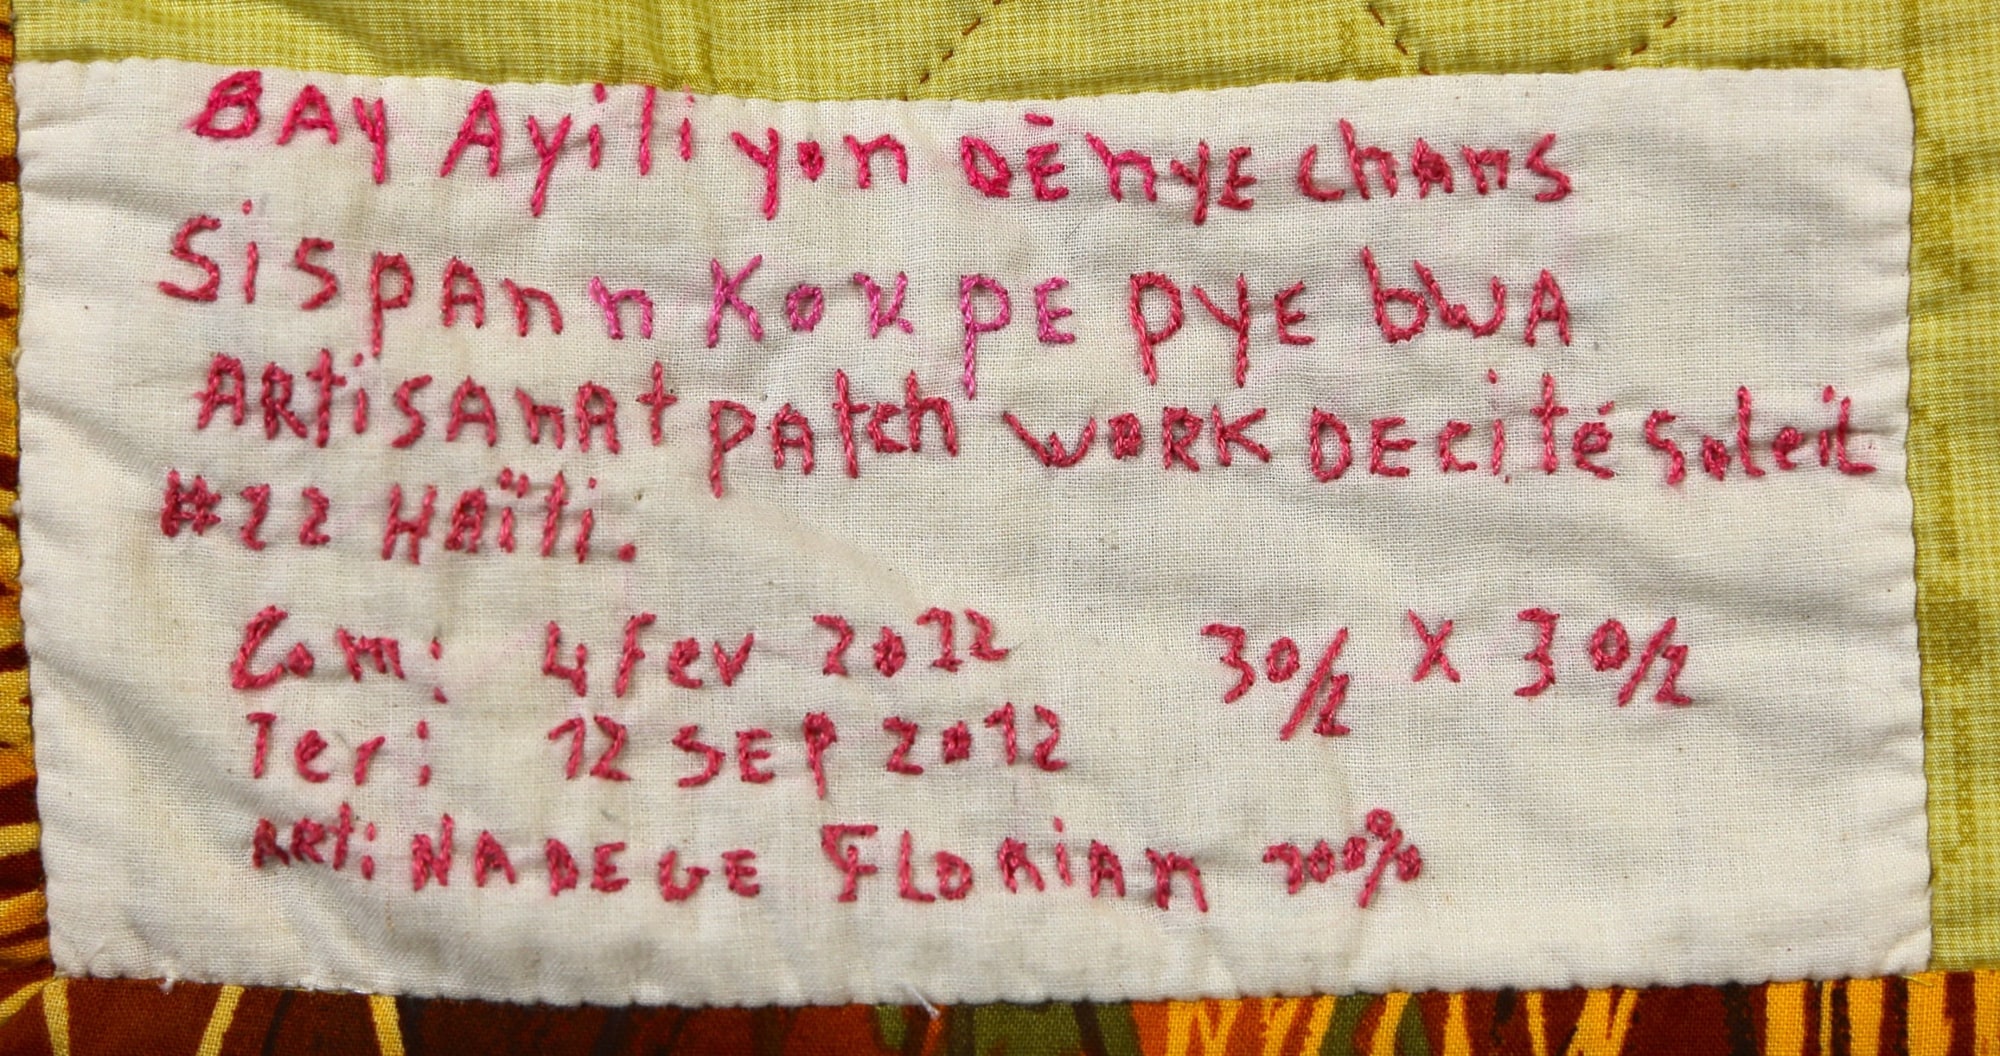 BAy Ayili yon DÈnyE chAns
Si spAnn Kok pE pyE bwA
ARtisAnAt pAtch woRK DE cité Soleil
#22 HAïti.
Com: 4 Fev 2012 30/2 X 30/2
Ter: 12 SEP 2012
ARti NADEGE FLORiAn 100%